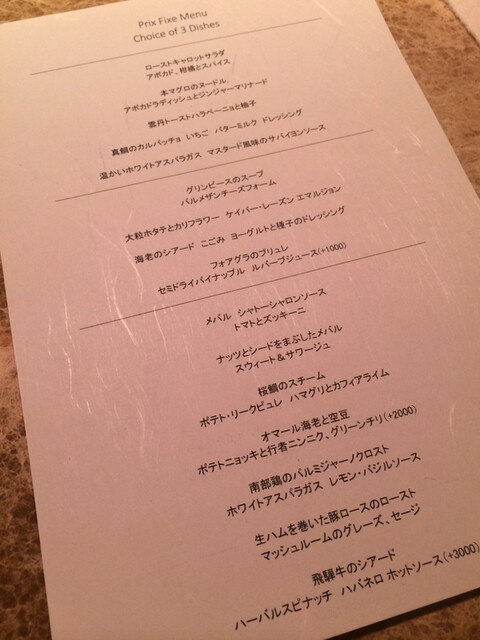 Prix Fixe Menu
Choice of 3 Dishes
ローストキャロットサラダ
アボカド、柑橘とスパイス
本マグロのヌードル、
アボカドラディッシュとジンジャーマリナード
雲丹トーストハラペーニョと柚子
真鯛のカルパッチョ いちご バターミルク ドレッシング
温かいホワイトアスパラガス マスタード風味のサバイヨンソース
グリンピースのスープ
パルメザンチーズフォーム
大粒ホタテとカリフラワー ケイパー・レーズン エマルジョン
海老のシアード こごみ ヨーグルトと種子のドレッシング
フォアグラのブリュレ
セミドライパイナップル ルバーブジュース(+1000)
メバル シャトーシャロンソース
トマトとズッキーニ
ナッツとシードをまぶしたメバル
スウィート&サワージュ
桜鯛のスチーム
ポテト・リークピュレ ハマグリとカフィアライム
オマール海老と空豆
ポテトニョッキと行者ニンニク、グリーンチリ(+2000)
南部鶏のパルミジャーノクロスト
ホワイトアスパラガス レモン・バジルソース
生ハムを巻いた豚ロースのロースト
マッシュルームのグレーズ、セージ
飛騨牛のシアード
ハーバルスピナッチ ハバネロ ホットソース(+3000)